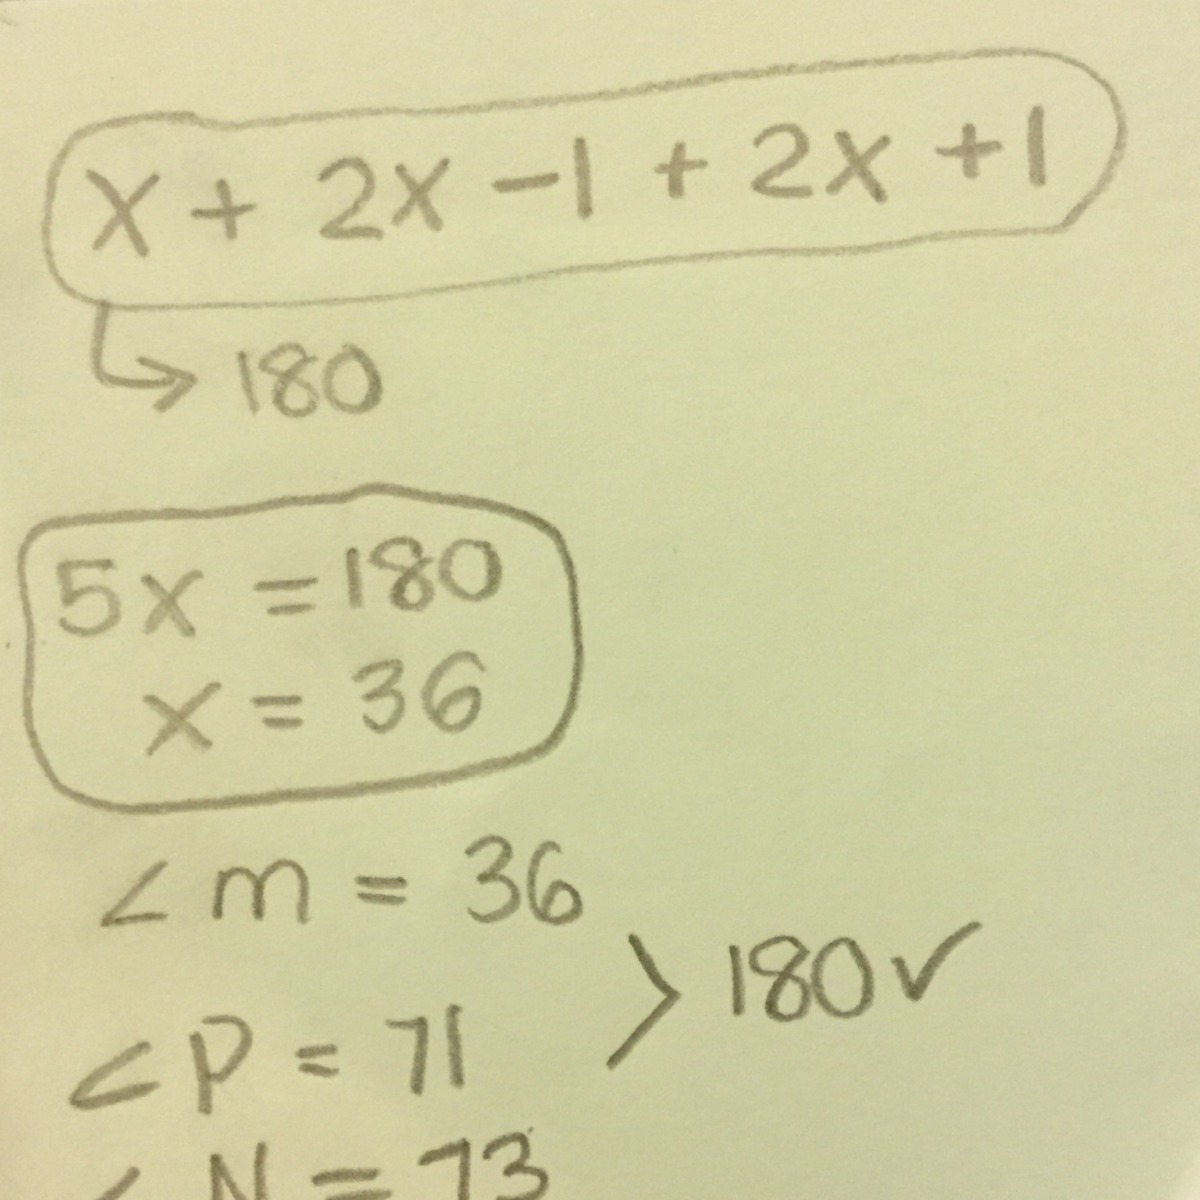 x + 2x - 1 + 2x + 1
↳ 180
5x = 180
x = 36
∠ m = 36
> 180 ✓
∠ P = 71
∠ N = 73